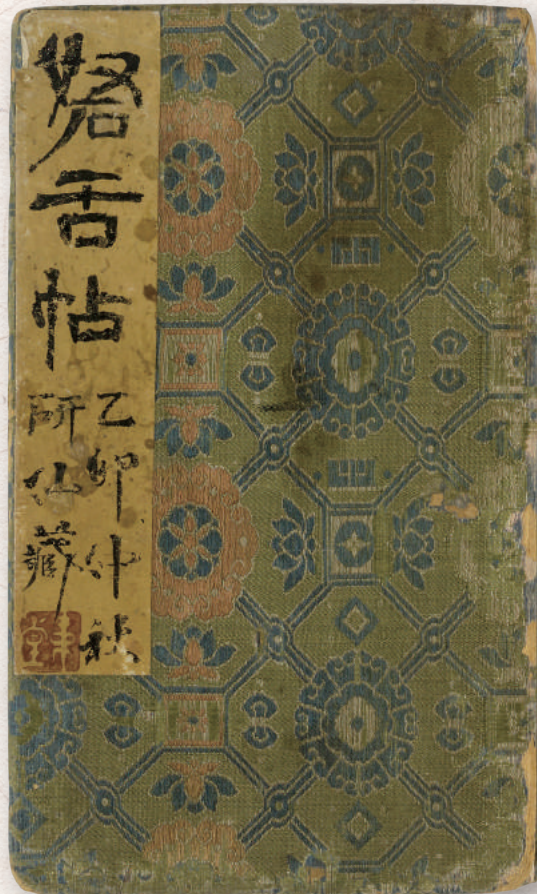 舌帖
乙卯仲秋
研仙藏